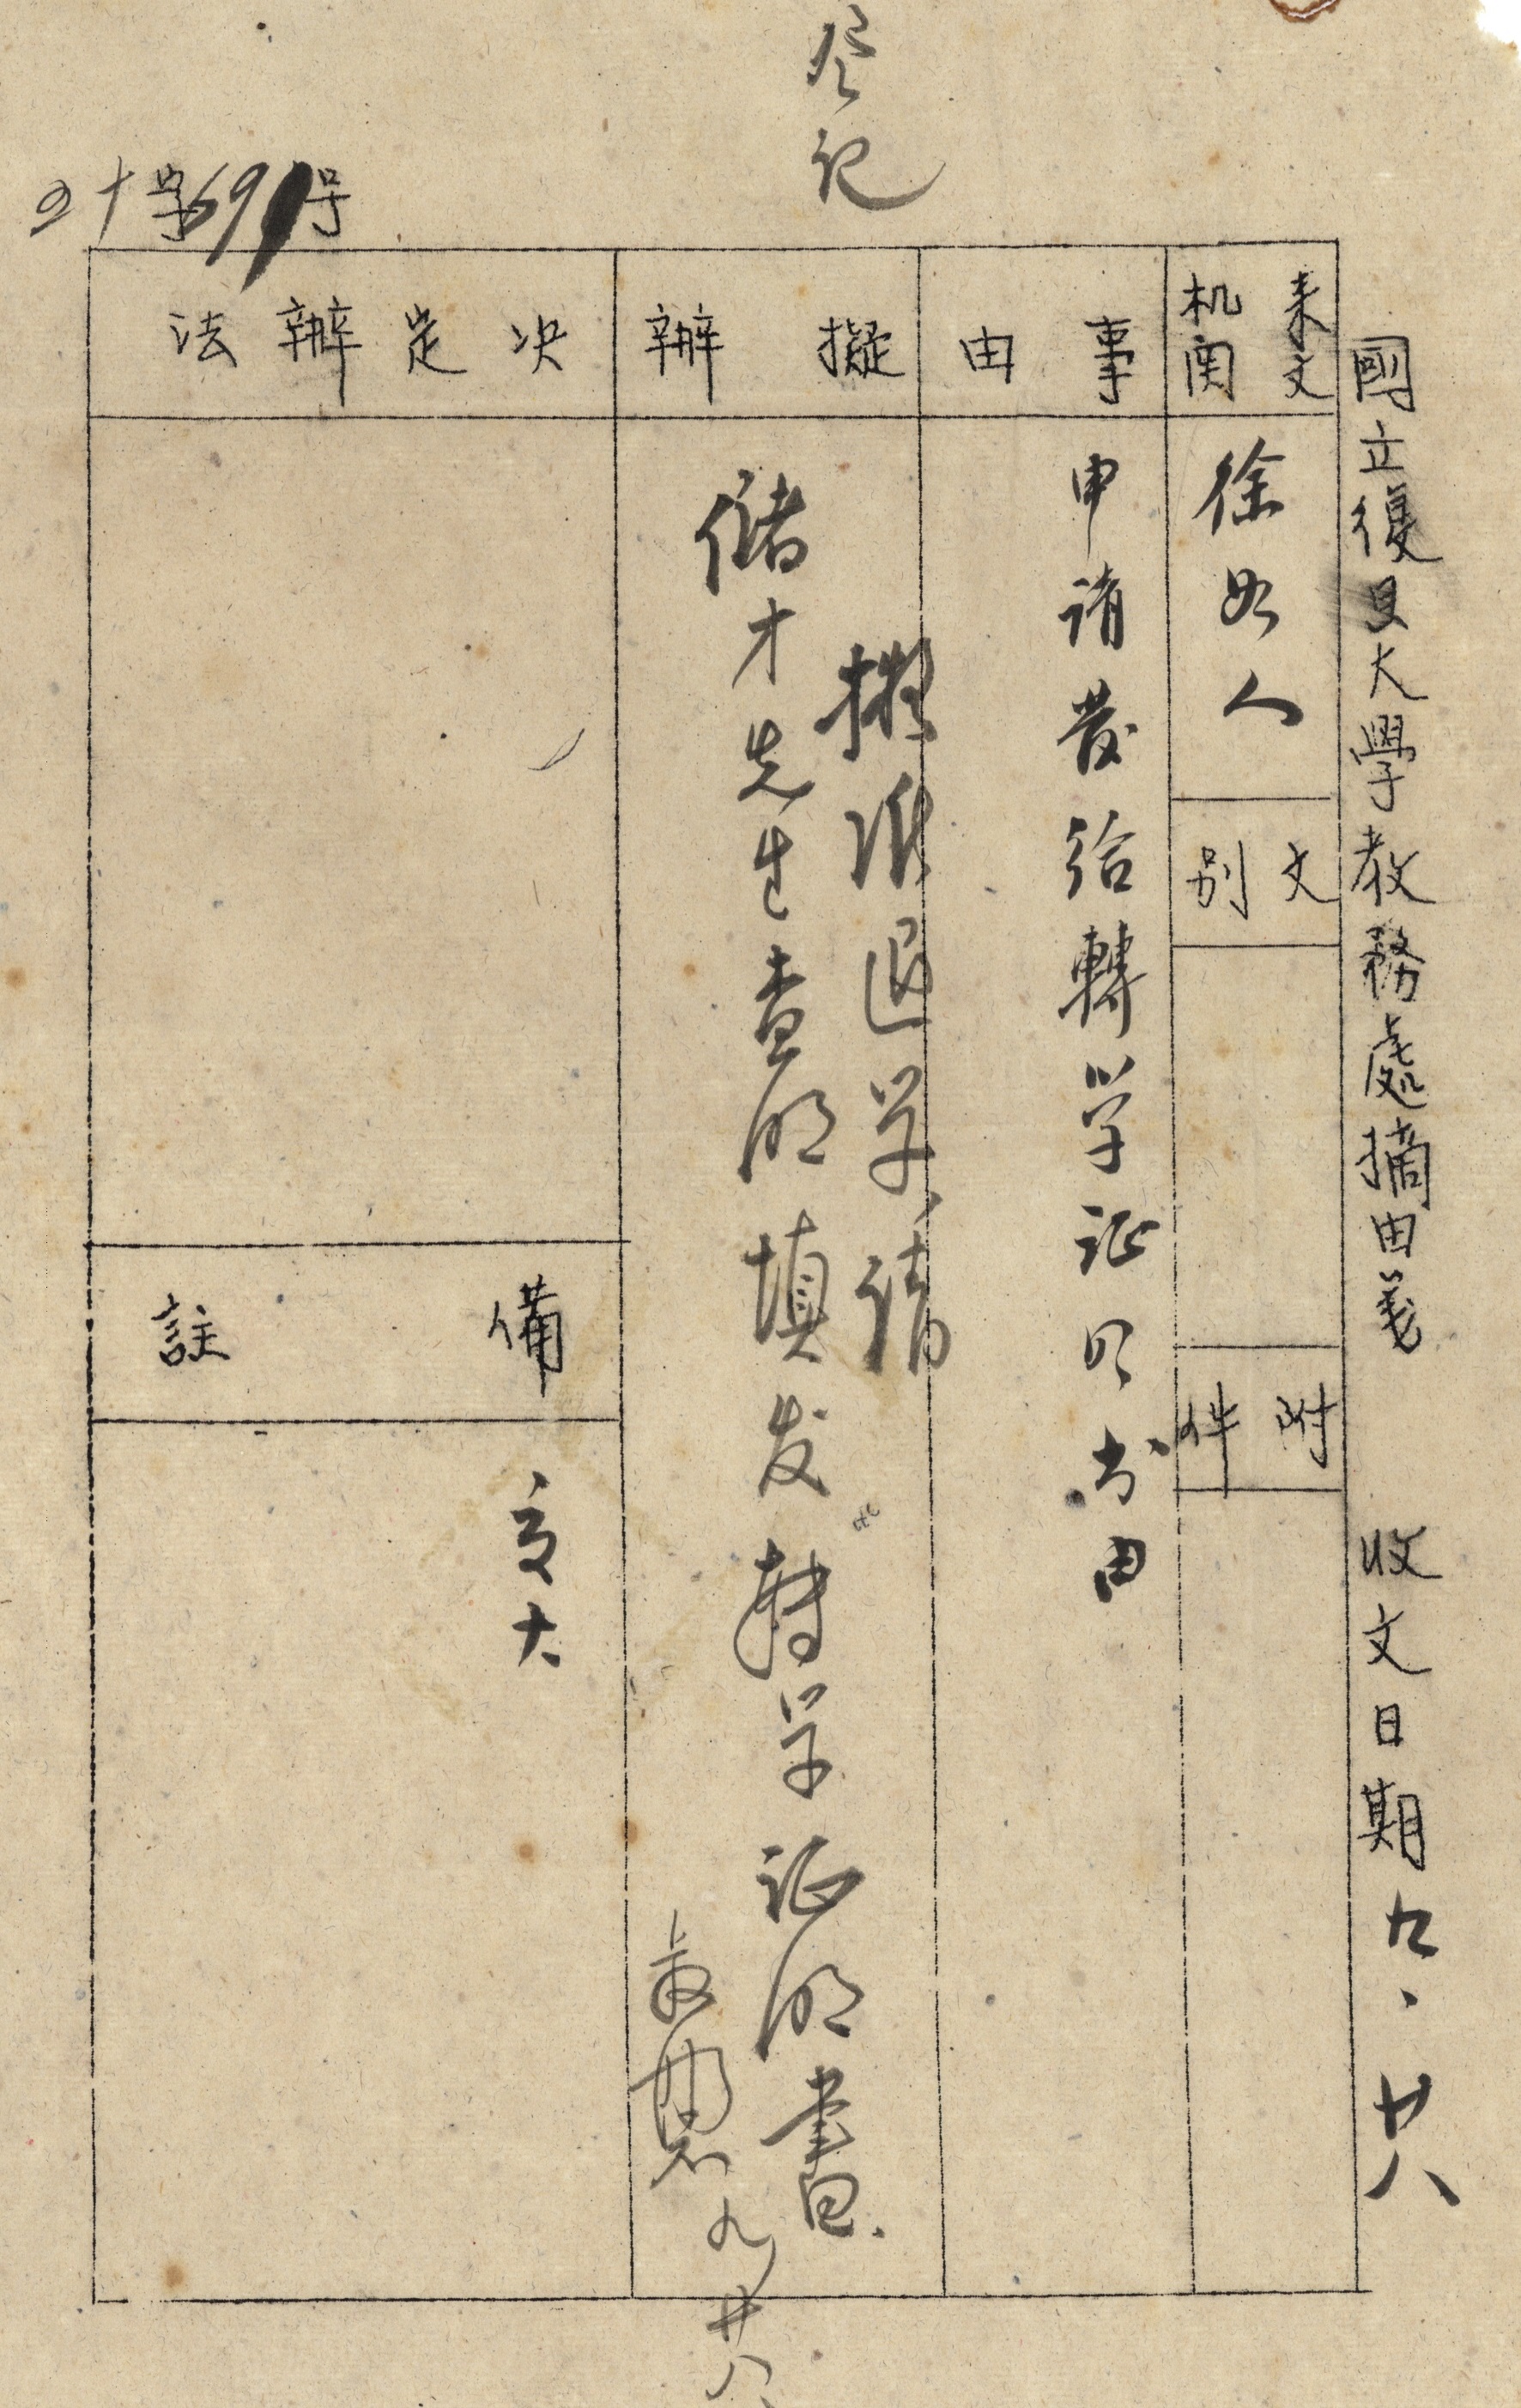 國立復旦大學教務處摘由箋 收文日期 九、廿八
来文机関
徐如人
文別
附件
事由
申请發给轉学证明书由
擬辦
擬准退学,请
儲才先生查明填发转学证明書.
九 廿八
決定辦法
備註
交大
登记
字691号